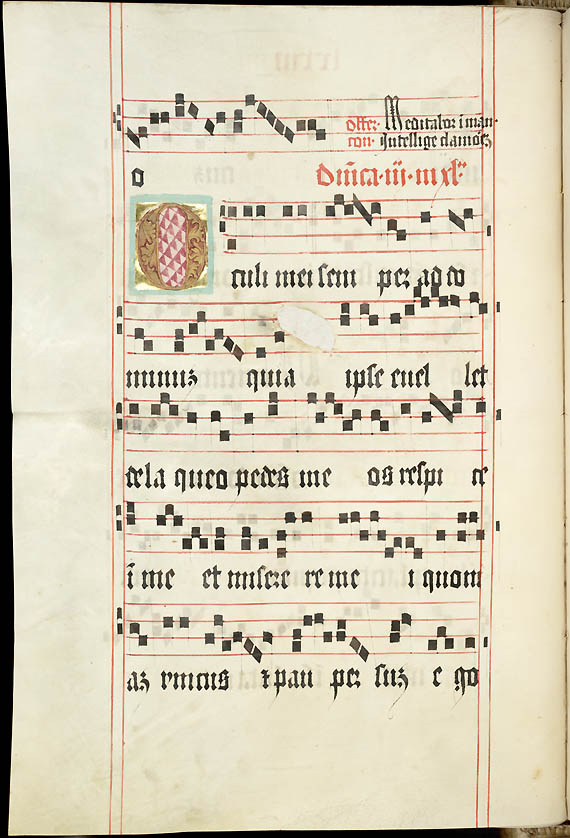 offer. Meditabor i man
con. Intellige clamorē
o
Dñica iij mxlᵉ
Oculi mei sem per ad do
minuz quia ipse euel let
de la queo pedes me os respi ce
ī me et misere re me i quoni
az vnicus ⁊ pau per suz e go